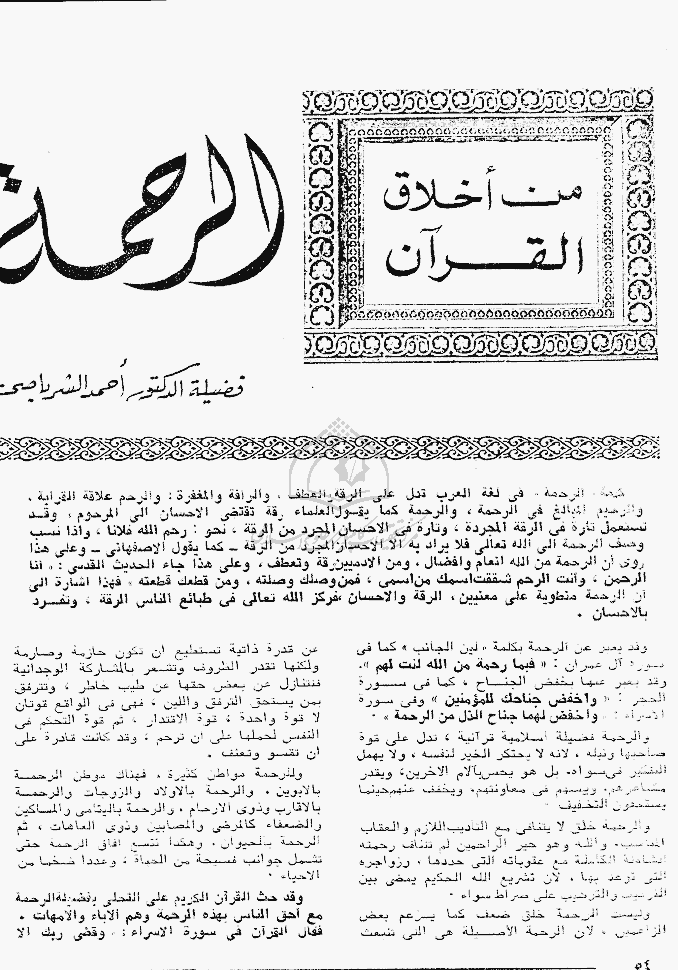 من أخلاق
القرآن
الرحمة
فضيلة الدكتور أحمد الشرباصي
كلمة « الرحمة » فى لغة العرب تدل على الرقة والعطف ، والرافة والمغفرة : والرحم علاقة القرابة ،
والرحيم المبالغ فى الرحمة ، والرحمة كما يقول العلماء رقة تقتضى الاحسان الى المرحوم ، وقد
تستعمل تارة فى الرقة المجردة ، وتارة فى الاحسان المجرد من الرقة ، نحو : رحم الله فلانا ، واذا نسب
وصف الرحمة الى الله تعالى فلا يراد به الا الاحسان المجرد من الرقة ــ كما يقول الاصفهانى ــ وعلى هذا
روى أن الرحمة من الله انعام وافضال ، ومن الادميين رقة وتعطف ، وعلى هذا جاء الحديث القدسى : « أنا
الرحمن ، وأنت الرحم شققت اسمك من اسمى ، فمن وصلك وصلته ، ومن قطعك قطعته » فهذا اشارة الى
أن الرحمة منطوية على معنيين ، الرقة والاحسان ، فركز الله تعالى فى طبائع الناس الرقة ، وتفرد
بالاحسان .
وقد يعبر عن الرحمة بكلمة « لين الجانب » كما فى
سورة آل عمران : « فبما رحمة من الله لنت لهم ».
وقد يعبر عنها بخفض الجناح ، كما فى سورة
الحجر : « واخفض جناحك للمؤمنين » وفى سورة
الاسراء : « وأخفض لهما جناح الذل من الرحمة » .
والرحمة فضيلة اسلامية قرآنية ، تدل على قوة
صاحبها ونبله ، لانه لا يحتكر الخير لنفسه ، ولا يهمل
التفكير فى سواه. بل هو يحس بآلام الاخرين، ويقدر
مشاعرهم، ويسهم فى معاونتهم، ويخفف عنهم حينما
يستحقون التخفيف .
والرحمة خلق لا يتنافى مع التأديب اللازم والعقاب
المناسب. والله وهو خير الراحمين لم تتناف رحمته
الشاملة الكاملة مع عقوباته التى حددها ، وزواجره
التى توعد بها ، لان تشريع الله الحكيم يمضى بين
الترهيب والترغيب على صراط سواء .
وليست الرحمة خلق ضعف كما يزعم بعض
الزاعمين ، لان الرحمة الأصيلة هى التى تنبعث
عن قدرة ذاتية تستطيع ان تكون حازمة وصارمة
ولكنها تقدر الظروف وتشعر بالمشاركة الوجدانية
فتتنازل عن بعض حقها عن طيب خاطر ، وتترفق
بمن يستحق الترفق واللين ، فهى فى الواقع قوتان
لا قوة واحدة ، قوة الاقتدار ، ثم قوة التحكم فى
النفس لحملها على ان ترحم ، وقد كانت قادرة على
ان تقسو وتعنف .
وللرحمة مواطن كثيرة ، فهناك موطن الرحمة
بالابوين ، والرحمة بالاولاد والزوجات والرحمة
بالاقارب وذوى الارحام ، والرحمة باليتامى والمساكين
والضعفاء كالمرضى والمصابين وذوى العاهات ، ثم
الرحمة بالحيوان . وهكذا تتسع افاق الرحمة حتى
تشمل جوانب فسيحة من الحياة ، وعددا ضخما من
الاحياء .
وقد حث القرآن الكريم على التحلى بفضيلة الرحمة
مع أحق الناس بهذه الرحمة وهم الآباء والامهات ،
فقال القرآن فى سورة الاسراء : « وقضى ربك الا
٥٤